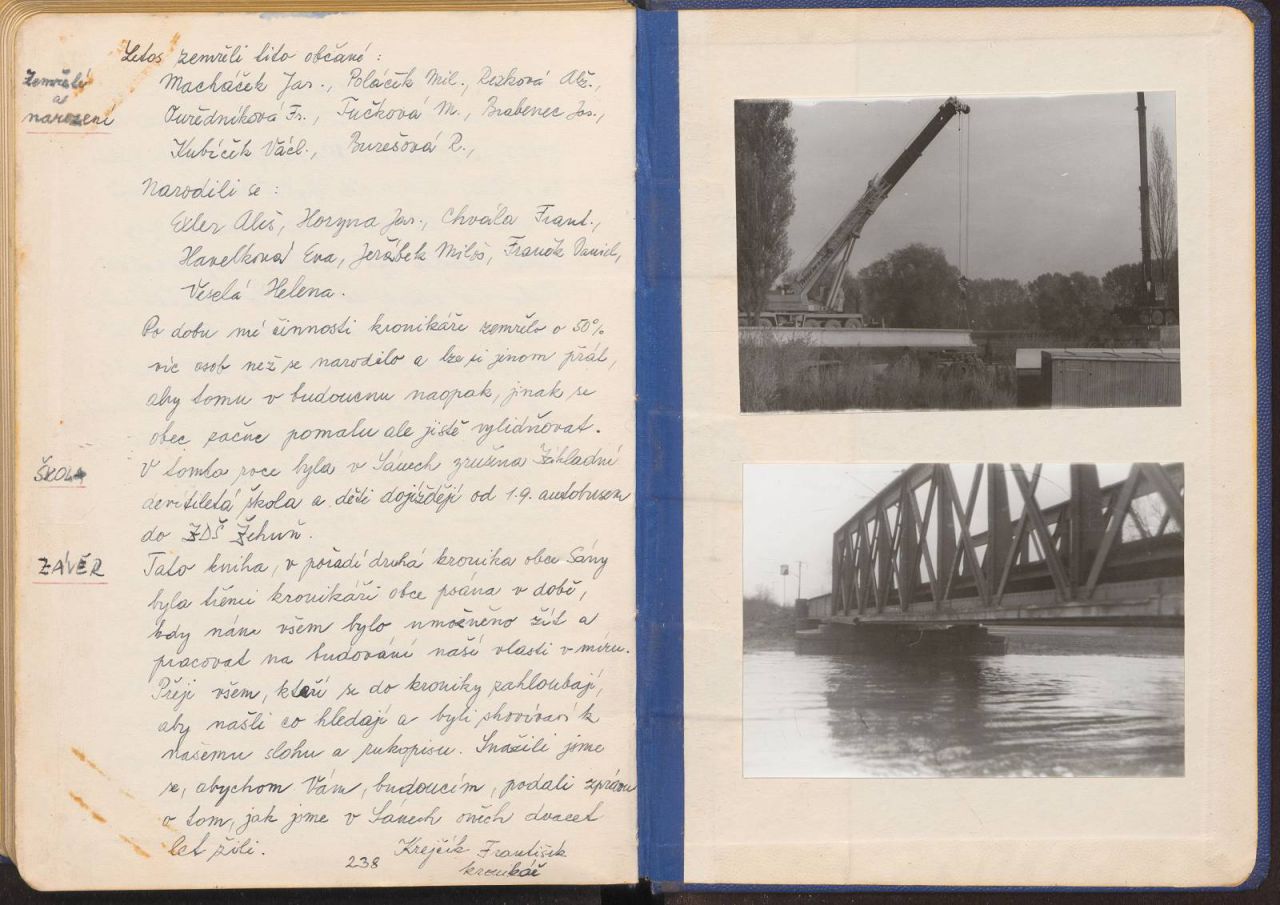 Letos zemřeli tito občané:
Zemřelí
a
narození
Macháček Jar., Poláček Mil., Rezková Alž.,
Ouředníková Fr., Fučková M., Brabenec Jos.,
Kubíček Václ., Burešová R.,
Narodili se:
Exler Aleš, Horyna Jar., Chvála Frant.,
Havelková Eva, Jeřábek Miloš, Franěk Daniel,
Veselá Helena.
Po dobu mé činnosti kronikáře zemřelo o 50%
víc osob než se narodilo a lze si jenom přát,
aby tomu v budoucnu naopak, jinak se
obec začne pomalu ale jistě vylidňovat.
ŠKOLA
V tomto roce byla v Sánech zrušena Základní
devítiletá škola a děti dojíždějí od 1.9. autobusem
do ZDŠ Žehuň.
ZÁVĚR
Tato kniha, v pořadí druhá kronika obce Sány
byla třemi kronikáři obce psána v době,
kdy nám všem bylo umožněno žít a
pracovat na budování naší vlasti v míru.
Přeji všem, kteří se do kroniky zahloubají,
aby našli co hledají a byli shovívaví k
našemu slohu a rukopisu. Snažili jsme
se, abychom Vám, budoucím, podali zprávu
o tom, jak jsme v Sánech oněch dvacet
let žili.
Krejčík František
238
kronikář